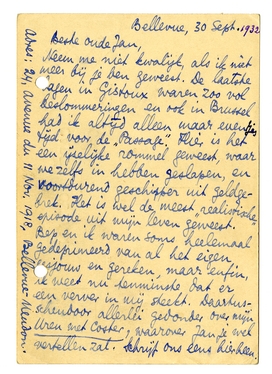 Bellevue, 30 Sept. 1932
Beste oude Jan,
Neem me niet kwalijk, als ik niet
meer bij je ben geweest. De laatste
dagen in Gistoux waren zoo vol
beslommeringen en ook in Brussel
had ik altijd alleen maar even
tijd voor de "Passage". Hier is het
een ijselijke rommel geweest, waar
we zelfs in hebben geslapen, en
voortdurend geschipper uit geldge-
brek. Het is wel de meest "realistische"
episode uit mijn leven geweest.
Bep en ik waren soms heelemaal
gedeprimeerd van al het eigen
gesjouw en gereken, maar enfin,
ik weet nu tenminste dat er
een verver in mij steekt. Daartus-
schendoor allerlei gedonder over mijn
Uren met Coster, waarover Jan je wel
vertellen zal. Schrijf ons eens hierheen.
Adres: 24, avenue du 11 Nov. 1918, Bellevue-Meudon.